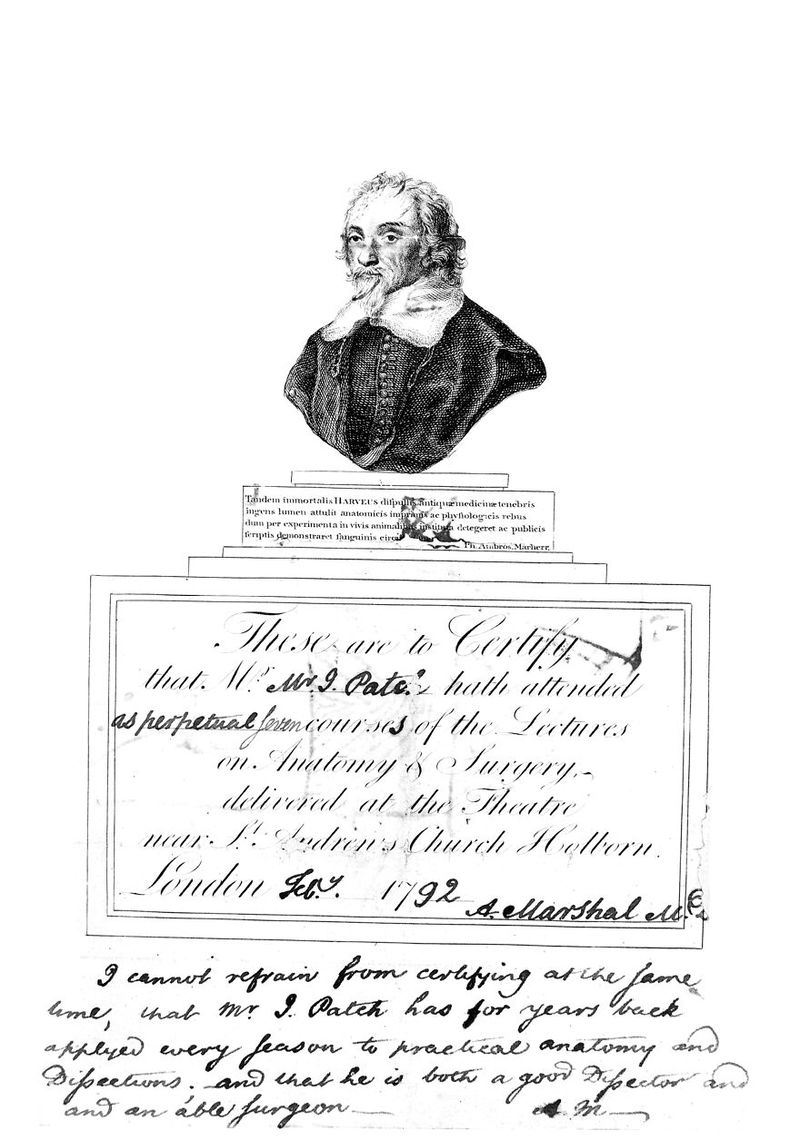 Tandem immortalis HARVEUS dispulsis antiquæ medicinæ tenebris
ingens lumen attulit anatomicis imprimis ac physiologicis rebus
dum per experimenta in vivis animalibus instituta detegeret ac publicis
scriptis demonstraret sanguinis
Ph. Ambros. Marherr.
These are to Certify
that Mr. Mr I. Patch hath attended
as perpetual seven courses of the Lectures
on Anatomy & Surgery,
delivered at the Theatre
near St. Andrew's Church Holborn.
London Feby. 1792
A. Marshal M.
I cannot refrain from certifying at the same
time, that Mr I. Patch has for years back
applyed every season to practical anatomy and
Dissections. and that he is both a good Dissector and
and an able surgeon
A M